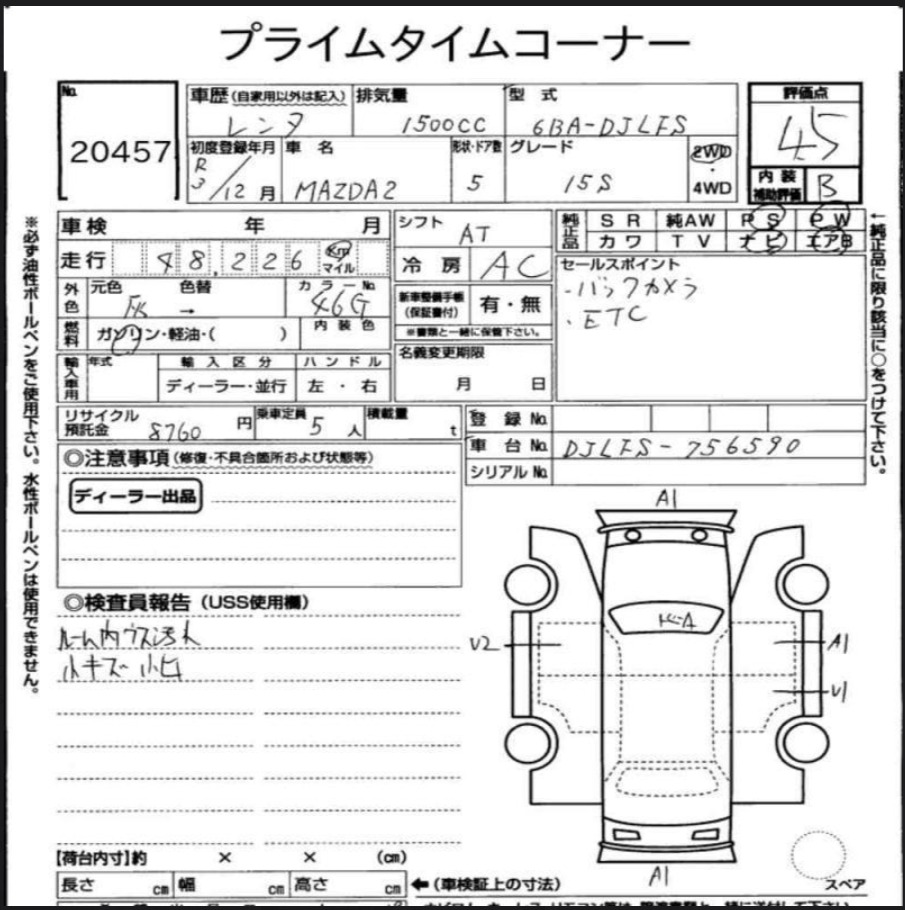 プライムタイムコーナー
No.
20457
車歴(自家用以外は記入)
レンタ
排気量
1500CC
型 式
6BA-DJLFS
評価点
45
内装補助評価 B
初度登録年月
R3/12月
車 名
MAZDA2
形状・ドア数
5
グレード
15S
2WD・4WD
車検 年 月
走行 48,226 Km マイル
外色
元色 色替
灰 →
カラーNo.
46G
燃料 ガソリン・軽油・( )
内装色
輸入車用 年式
輸入区分
ディーラー・並行
ハンドル
左・右
シフト
AT
冷房 AC
新車整備手帳(保証書付) 有・無
※書類と一緒に保管下さい。
名義変更期限
月 日
純正品 SR 純AW PS PW
カワ TV ナビ エアB
セールスポイント
・バックカメラ
・ETC
リサイクル預託金 8760 円
乗車定員 5 人
積載量 t
登録No.
車台No. DJLFS-756590
シリアルNo.
◎注意事項(修復・不具合箇所および状態等)
ディーラー出品
◎検査員報告(USS使用欄)
ルーム内ウス汚れ
小キズ 小凹
A1
V2
A1
V1
A1
スペア
【荷台内寸】約 × × (cm)
長さ cm 幅 cm 高さ cm ←(車検証上の寸法)
※必ず油性ボールペンをご使用下さい。水性ボールペンは使用できません。
←純正品に限り該当に○をつけて下さい。